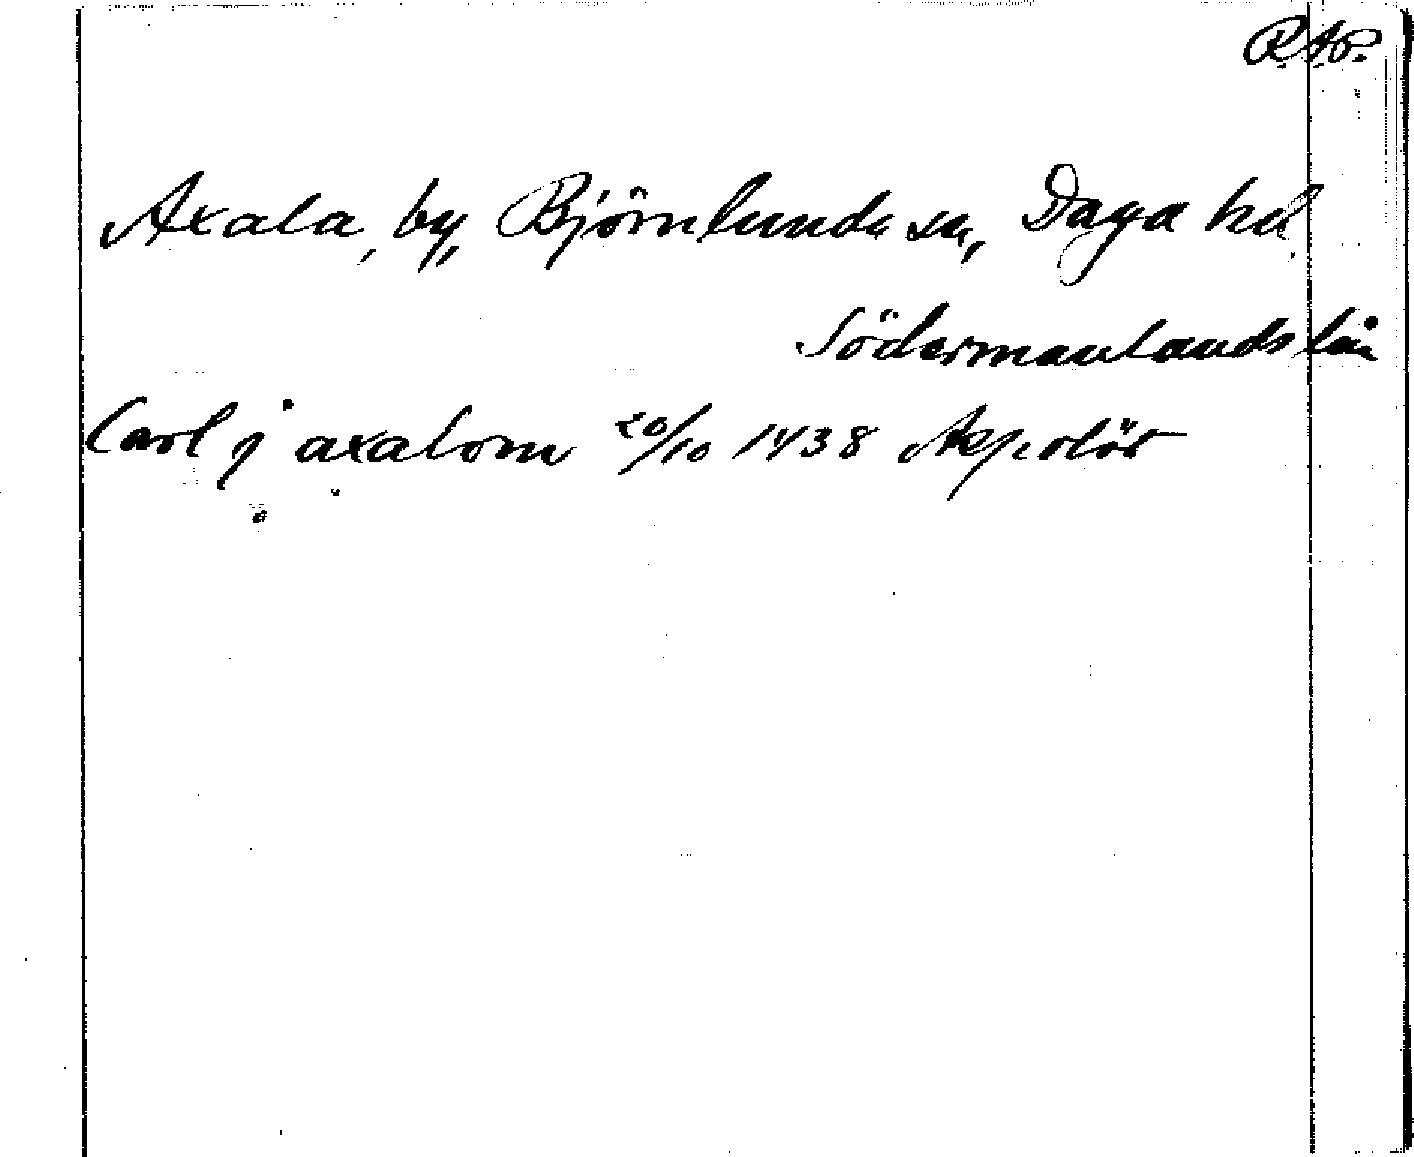 R.A.P.
Axala, by, Björnlunda sn, Daga hd.
Södermanlands län
Carl j axalom 20/10 1438 Aspolöt